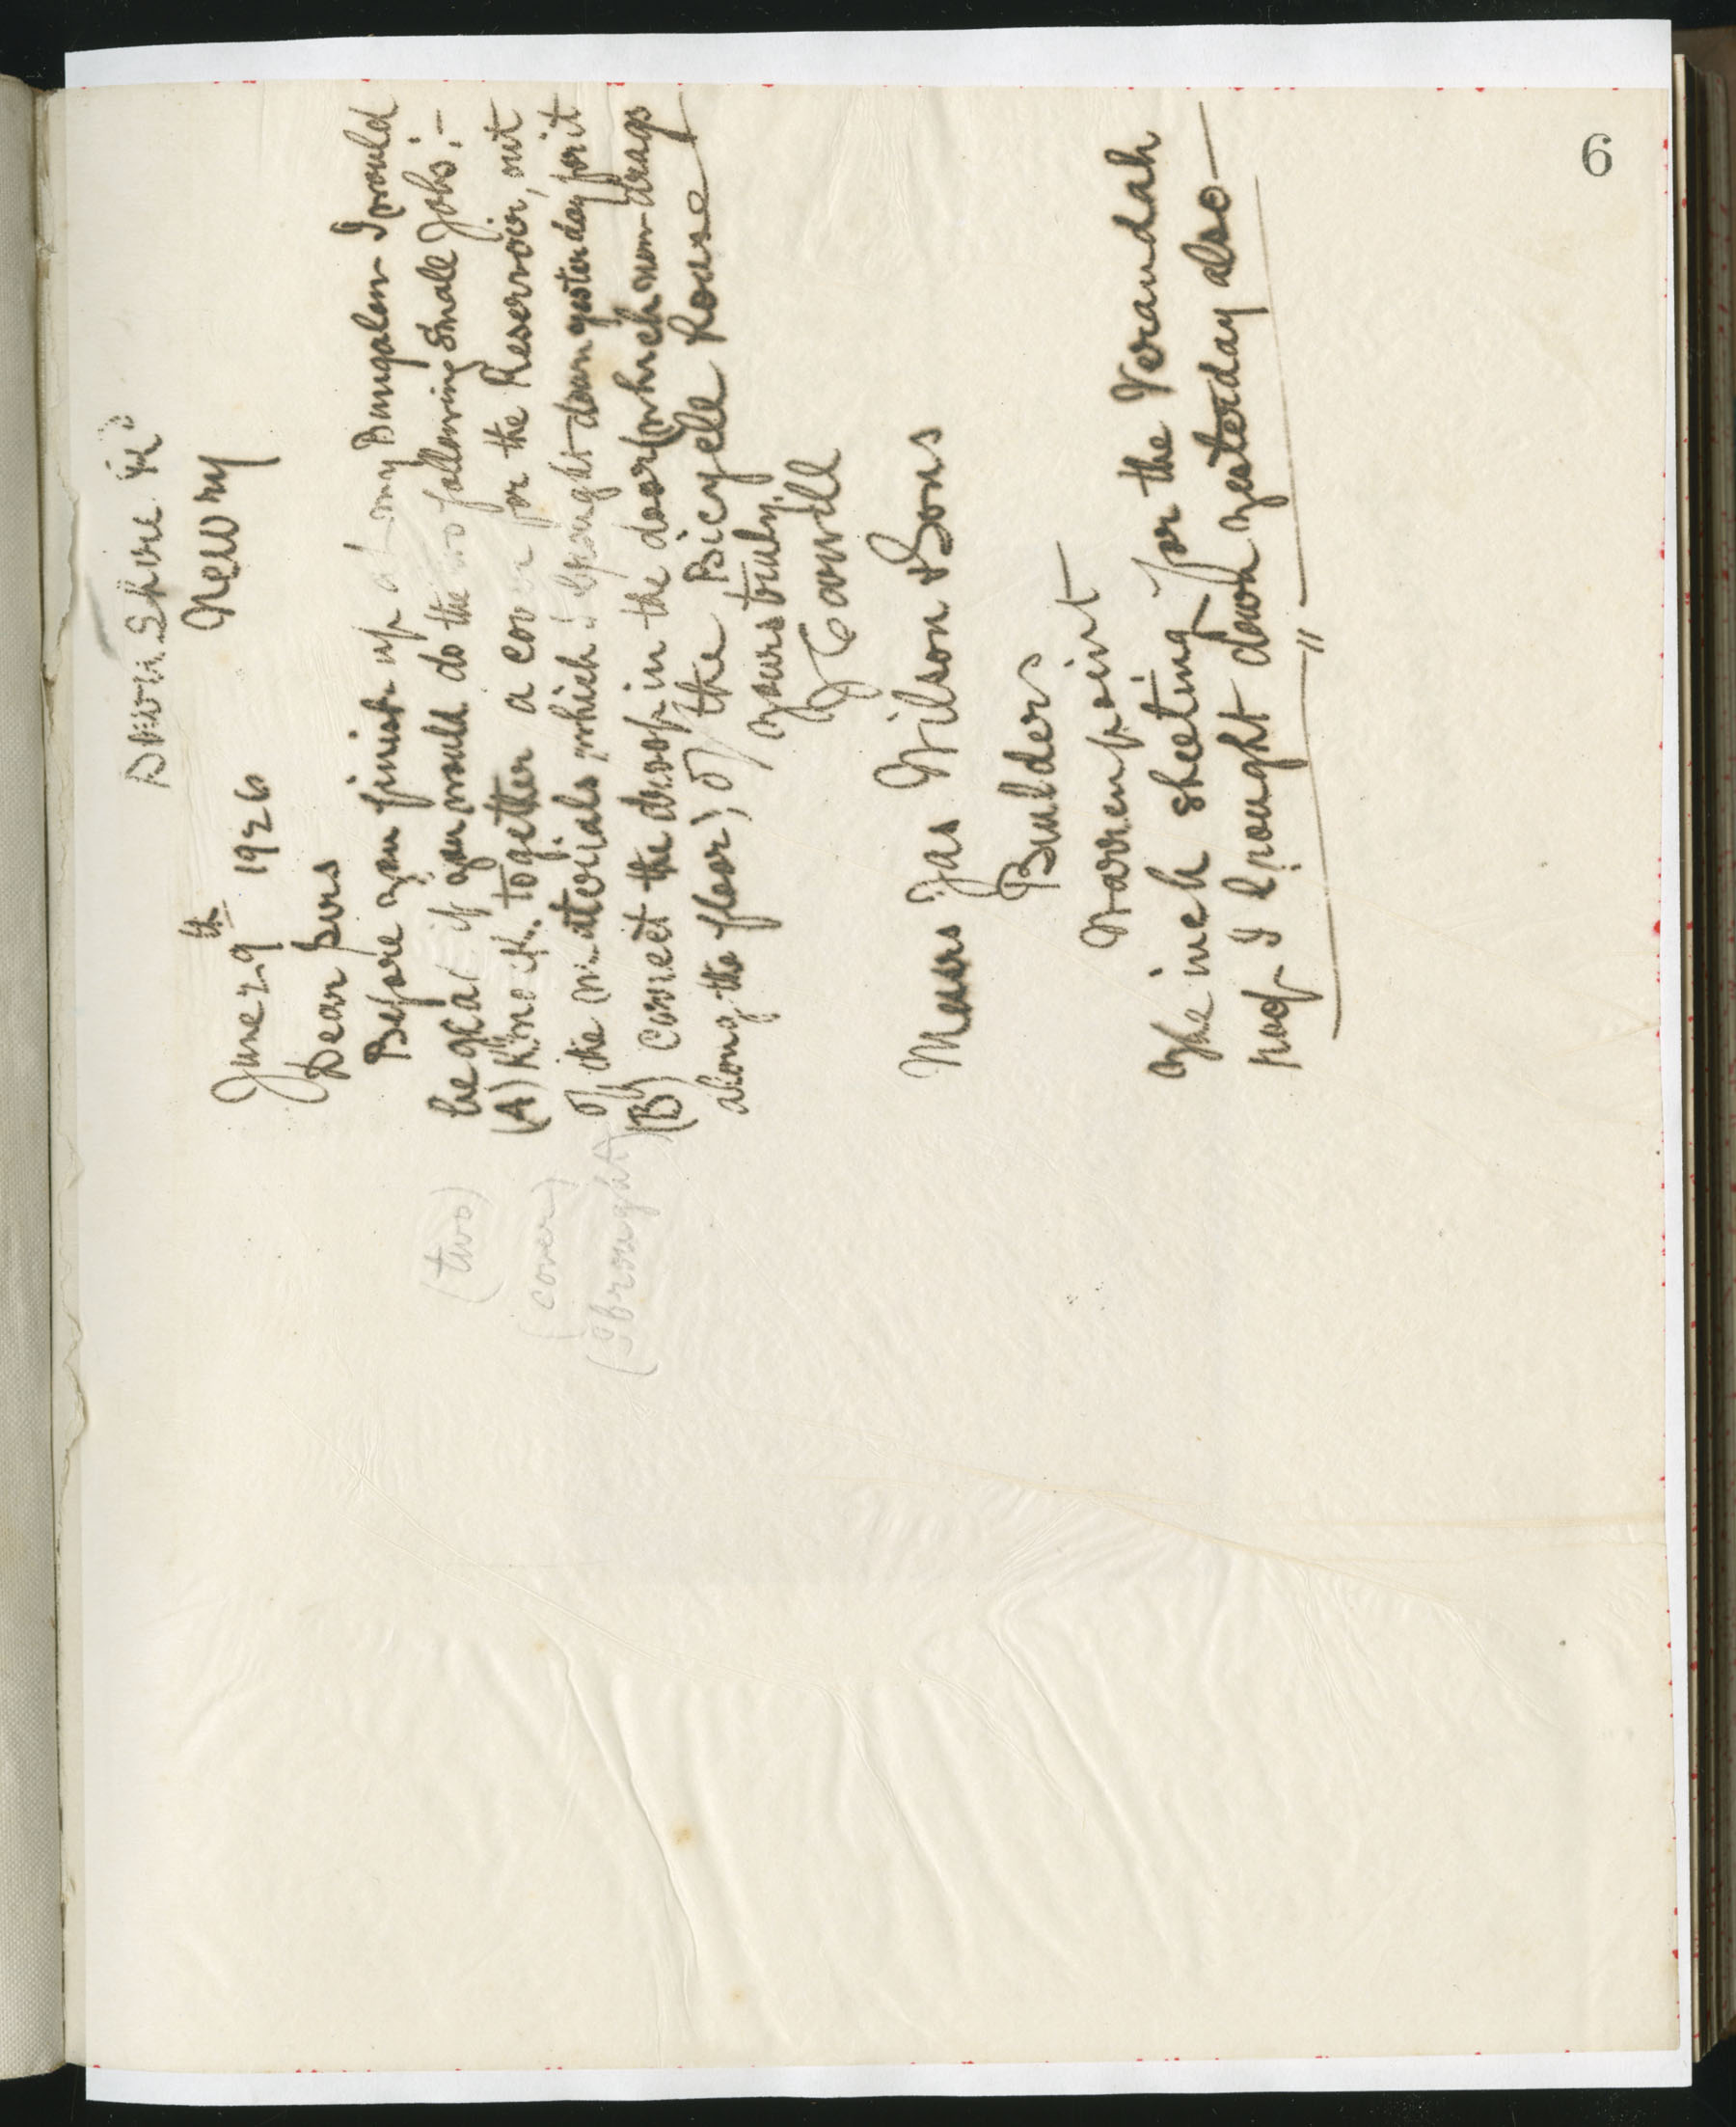 6
Downshire Rd
Newry
June 29th 1926
Dear Sirs
Before you finish up at my Bungalow I would
be glad if you would do the two following small jobs:-
(two)
(A) Knock together a cover for the Reservoir, out
(cover)
of the materials which I brought down yesterday for it
(I brought)
(B) Correct the droop in the door (which now drags
along the floor) of the Bicycle House
yours truly
Messrs Jas Wilson & Sons
Builders
Warrenpoint
The inch sheeting for the Verandah
roof I brought down yesterday also —